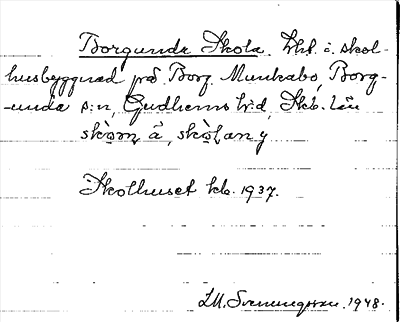 Borgunda Skola. Lht. i skol-
husbyggnad på Borg. Munkabo, Borg-
unda s:n, Gudhems h:d, Skb. län
skòm å, skòlan y
Skolhuset kb. 1937.
LM. Svenungsson. 1948.